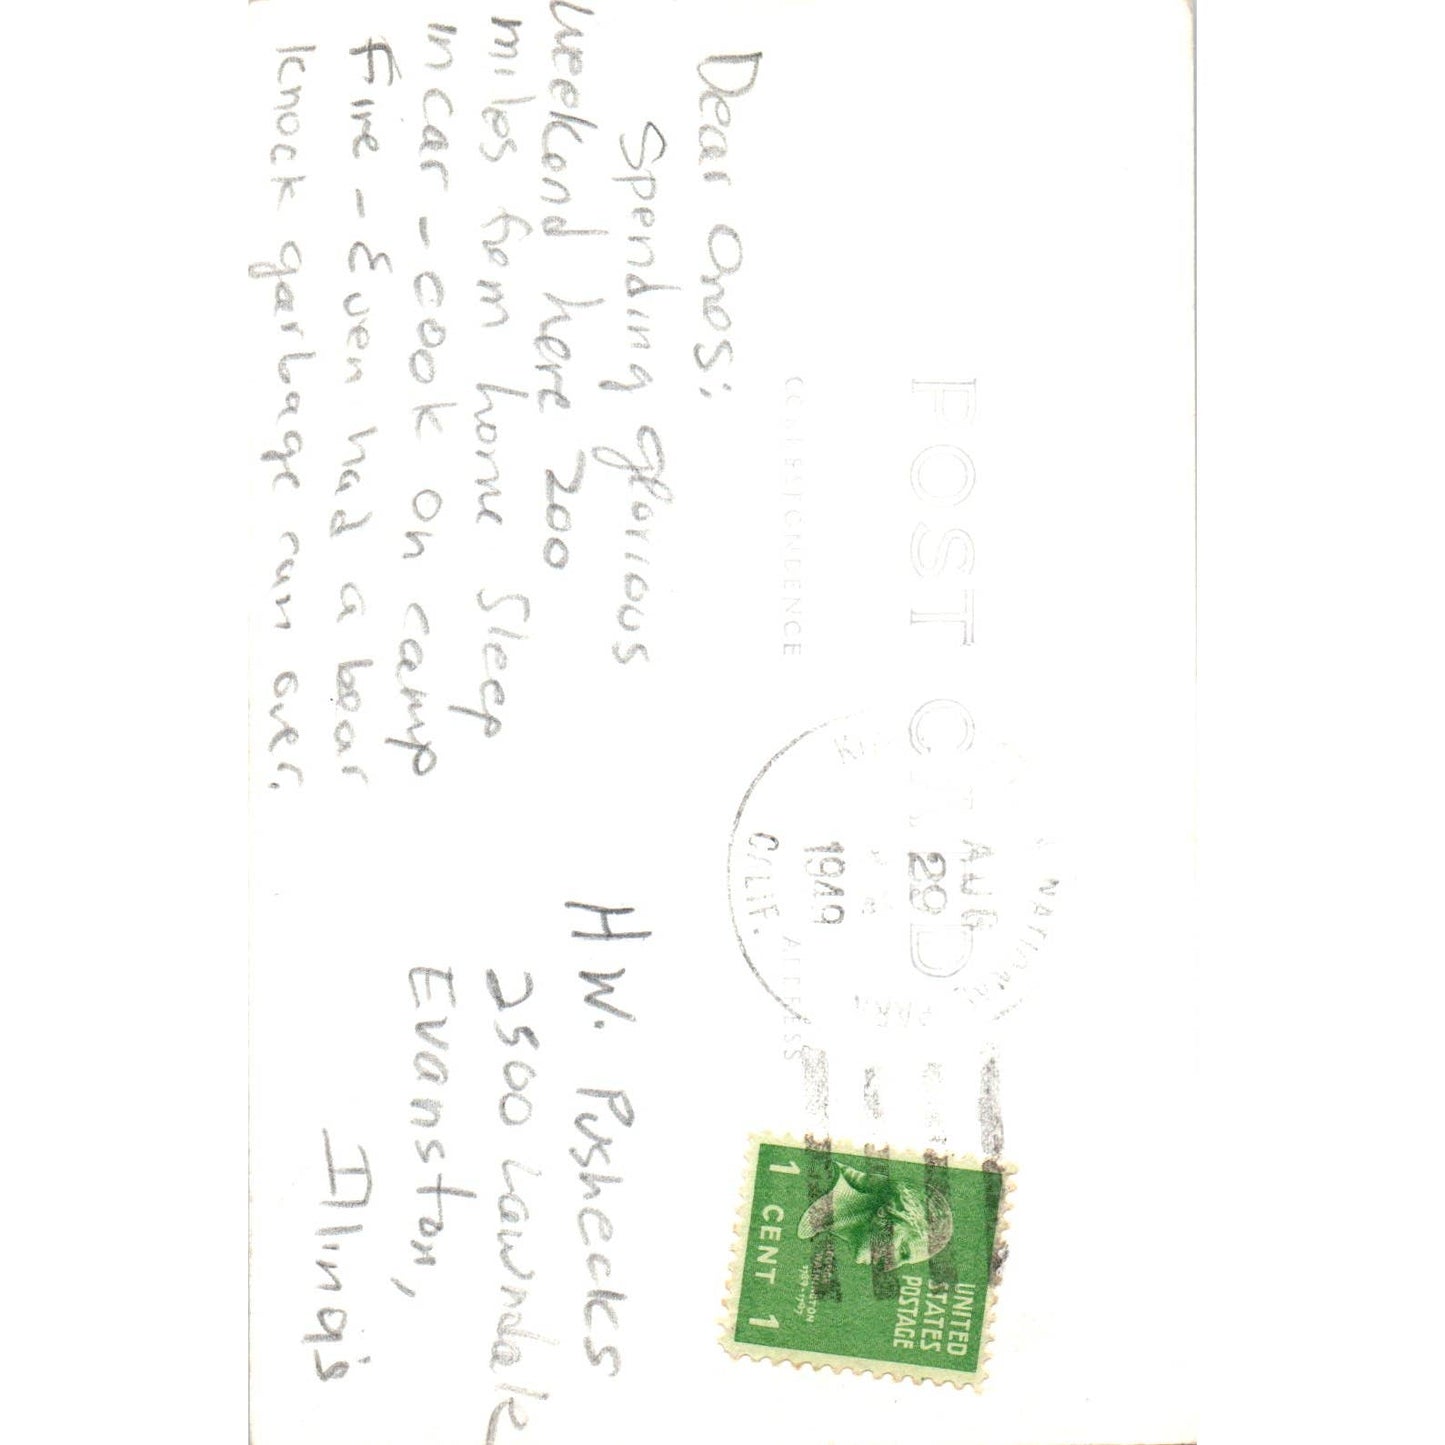 POST CARD
CORRESPONDENCE
ADDRESS
NATIONAL
AUG
29
1949
CALIF.
UNITED
STATES
POSTAGE
1789-1797
1 CENT 1
Dear Ones:
Spending glorious
weekend here 200
miles from home sleep
in car - cook on camp
Fire - Even had a bear
knock garbage can over.
H W. Pushecks
2500 Lawndale
Evanston,
Illinois